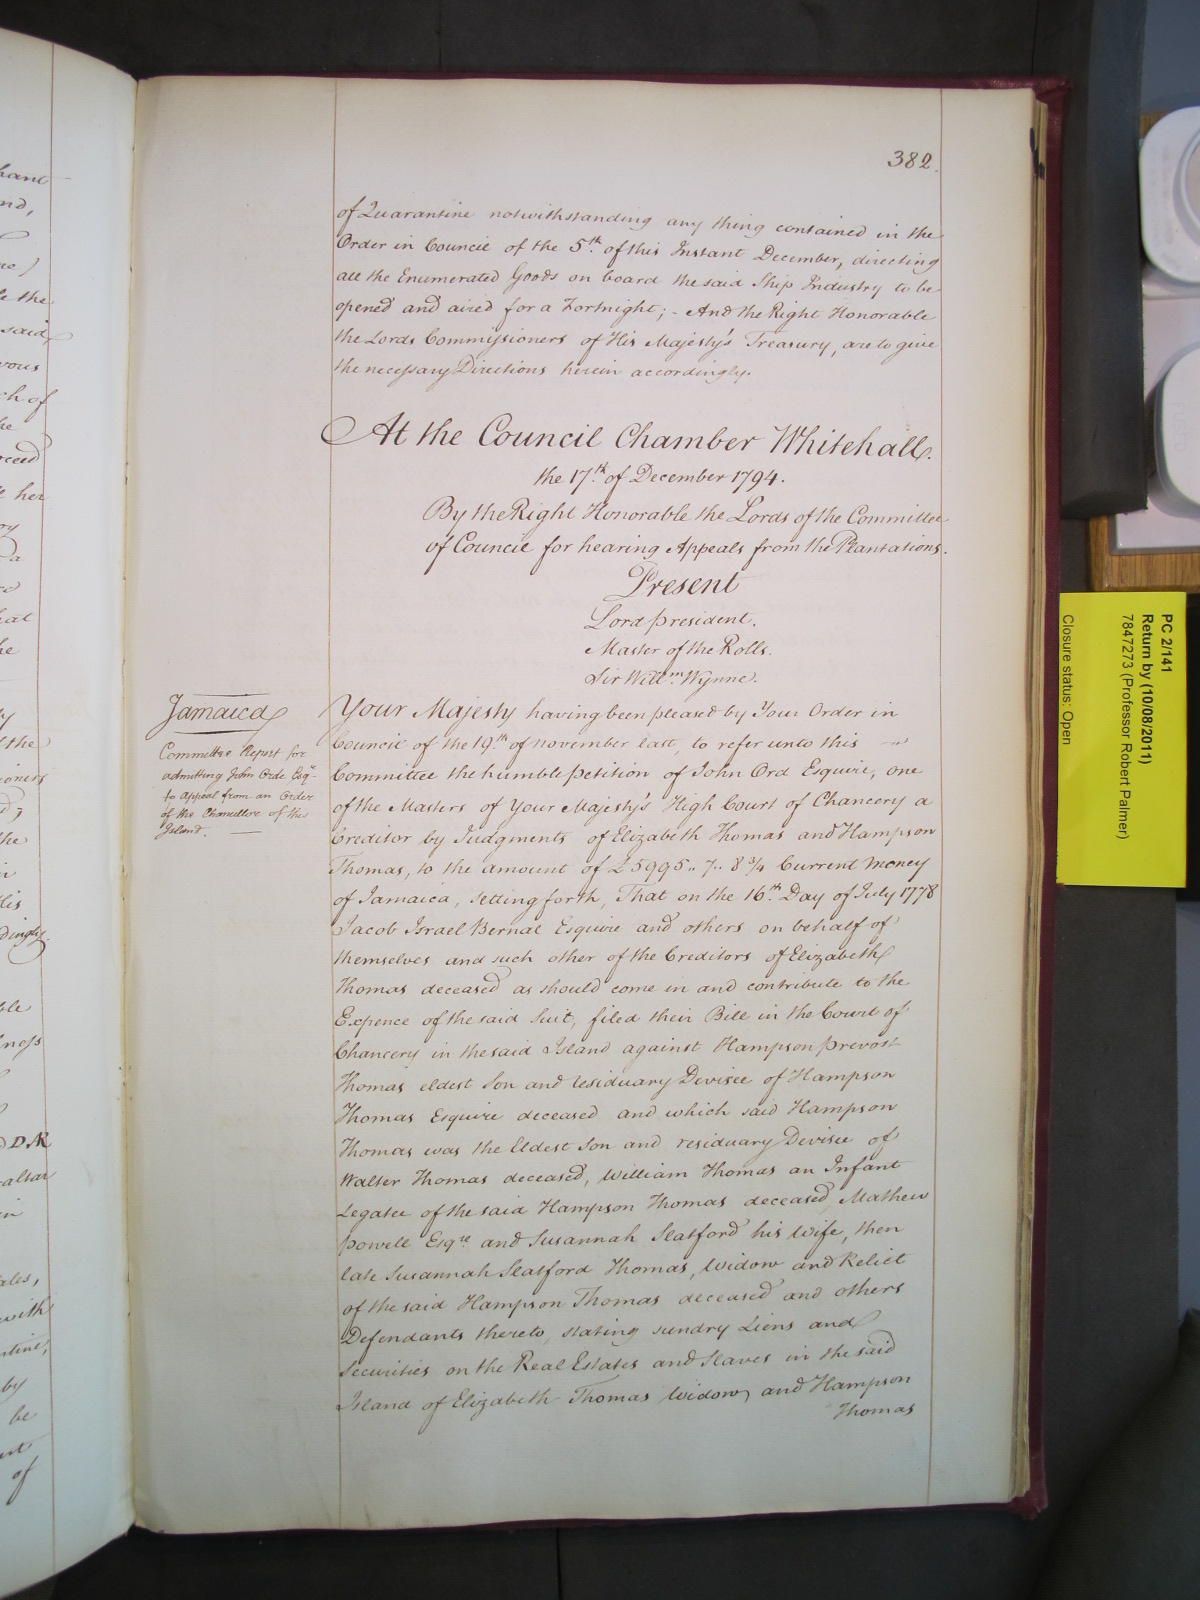 382.
of Quarantine notwithstanding any thing contained in the
Order in Council of the 5th of this Instant December, directing
all the Enumerated Goods on board the said Ship Industry to be
opened and aired for a Fortnight; - And the Right Honorable
the Lords Commissioners of His Majesty's Treasury, are to give
the necessary Directions herein accordingly.
At the Council Chamber Whitehall.
the 17th of December 1794.
By the Right Honorable the Lords of the Committee
of Council for hearing Appeals from the Plantations.
Present
Lord President.
Master of the Rolls.
Sir Willm Wynne.
Jamaica
Committee Report for
admitting John Orde Esqr
to Appeal from an Order
of the Chancellor of the
Island.
Your Majesty having been pleased by Your Order in
Council of the 19th of November last, to refer unto this
Committee the humble Petition of John Ord Esquire, one
of the Masters of Your Majesty's High Court of Chancery a
Creditor by Judgments of Elizabeth Thomas and Hampson
Thomas, to the amount of £5995.. 7.. 8 3/4 Current Money
of Jamaica, setting forth, That on the 16th Day of July 1778
Jacob Israel Bernal Esquire and others on behalf of
themselves and such other of the Creditors of Elizabeth
Thomas deceased as should come in and contribute to the
Expence of the said Suit, filed their Bill in the Court of
Chancery in the said Island against Hampson Prevost
Thomas eldest Son and residuary Devisee of Hampson
Thomas Esquire deceased and which said Hampson
Thomas was the Eldest Son and residuary Devisee of
Walter Thomas deceased, William Thomas an Infant
Legatee of the said Hampson Thomas deceased, Mathew
Powell Esqre and Susannah Slatford his Wife, then
late Susannah Slatford Thomas, Widow and Relict
of the said Hampson Thomas deceased and others
Defendants thereto, stating sundry Liens and
Securities on the Real Estates and Slaves in the said
Island of Elizabeth Thomas Widow, and Hampson
Thomas
PC 2/141
Return by (10/08/2011)
7847273 (Professor Robert Palmer)
Closure status: Open